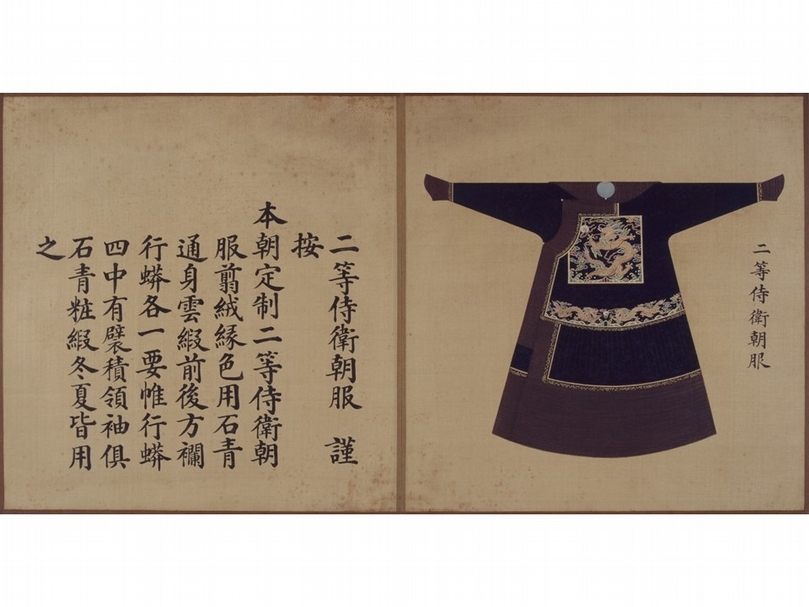 二等侍衛朝服
二等侍衛朝服 謹
按
本朝定制二等侍衛朝
服翦絨緣色用石青
通身雲緞前後方襴
行蟒各一要帷行蟒
四中有襞積領袖俱
石青粧緞冬夏皆用
之